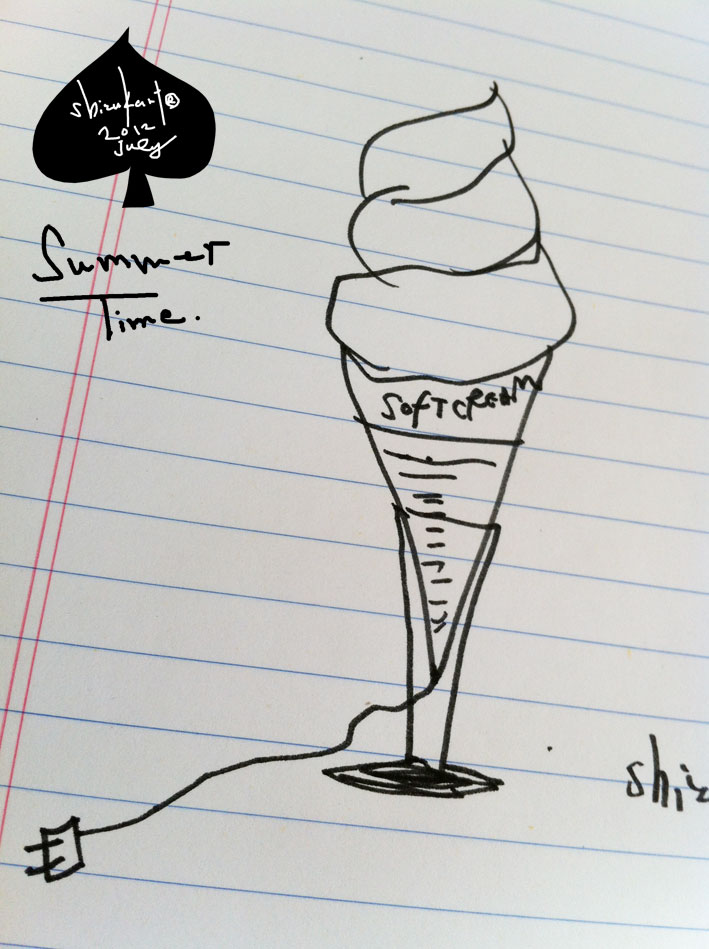 shizukart®
2012
July
Summer
Time.
SOFTCREAM
shiz